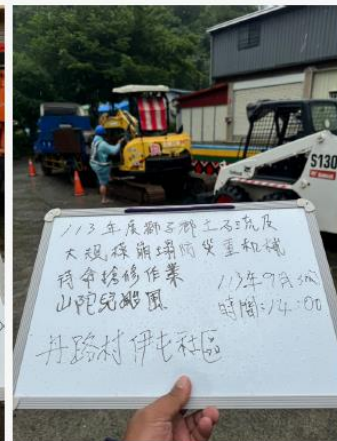 S130
113年度獅子鄉土石流及
大規模崩塌防災重機械
待命搶修作業
山陀兒颱風
113年9月30日
時間:14:00
丹路村伊屯社區